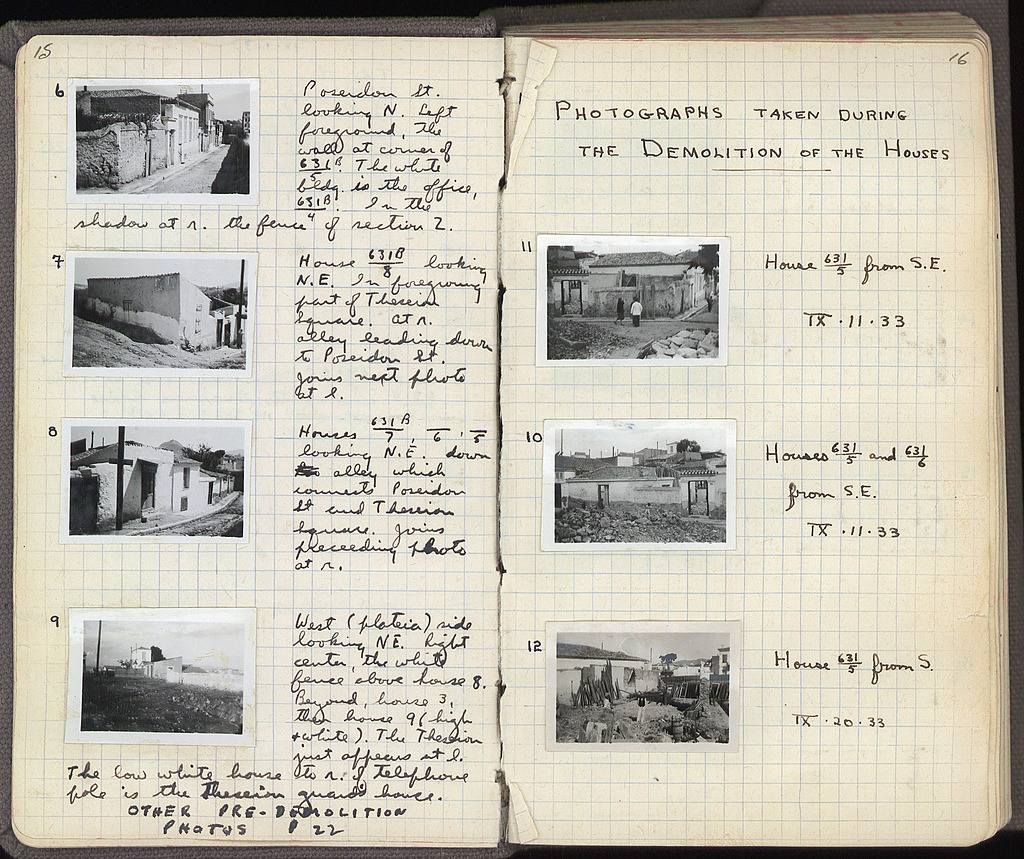 15
6
Poseidon St.
looking N. Left
foreground, the
wall at corner of
631B/5. The white
bldg. is the office,
631B/4. In the
shadow at r. the fence of section Z.
7
House 631B/8 looking
N.E. In foregroung
part of Theseion
Square. At r.
alley leading down
to Poseidon St.
Joins next photo
at l.
8
Houses 631B/7, —/6, —/5
looking N.E. down
alley which
connects Poseidon
St and Theseion
Square. Joins
preceeding photo
at r.
9
West (plateia) side
looking NE. Right
center, the white
fence above house 8.
Beyond, house 3,
then house 9 (high
+ white). The Theseion
just appears at l.
The low white house to r. of telephone
pole is the Theseion guards house.
OTHER PRE-DEMOLITION
PHOTOS P 22
16
PHOTOGRAPHS TAKEN DURING
THE DEMOLITION OF THE HOUSES
11
House 631/5 from S.E.
IX · 11 · 33
10
Houses 631/5 and 631/6
from S.E.
IX · 11 · 33
12
House 631/5 from S.
IX · 20 · 33